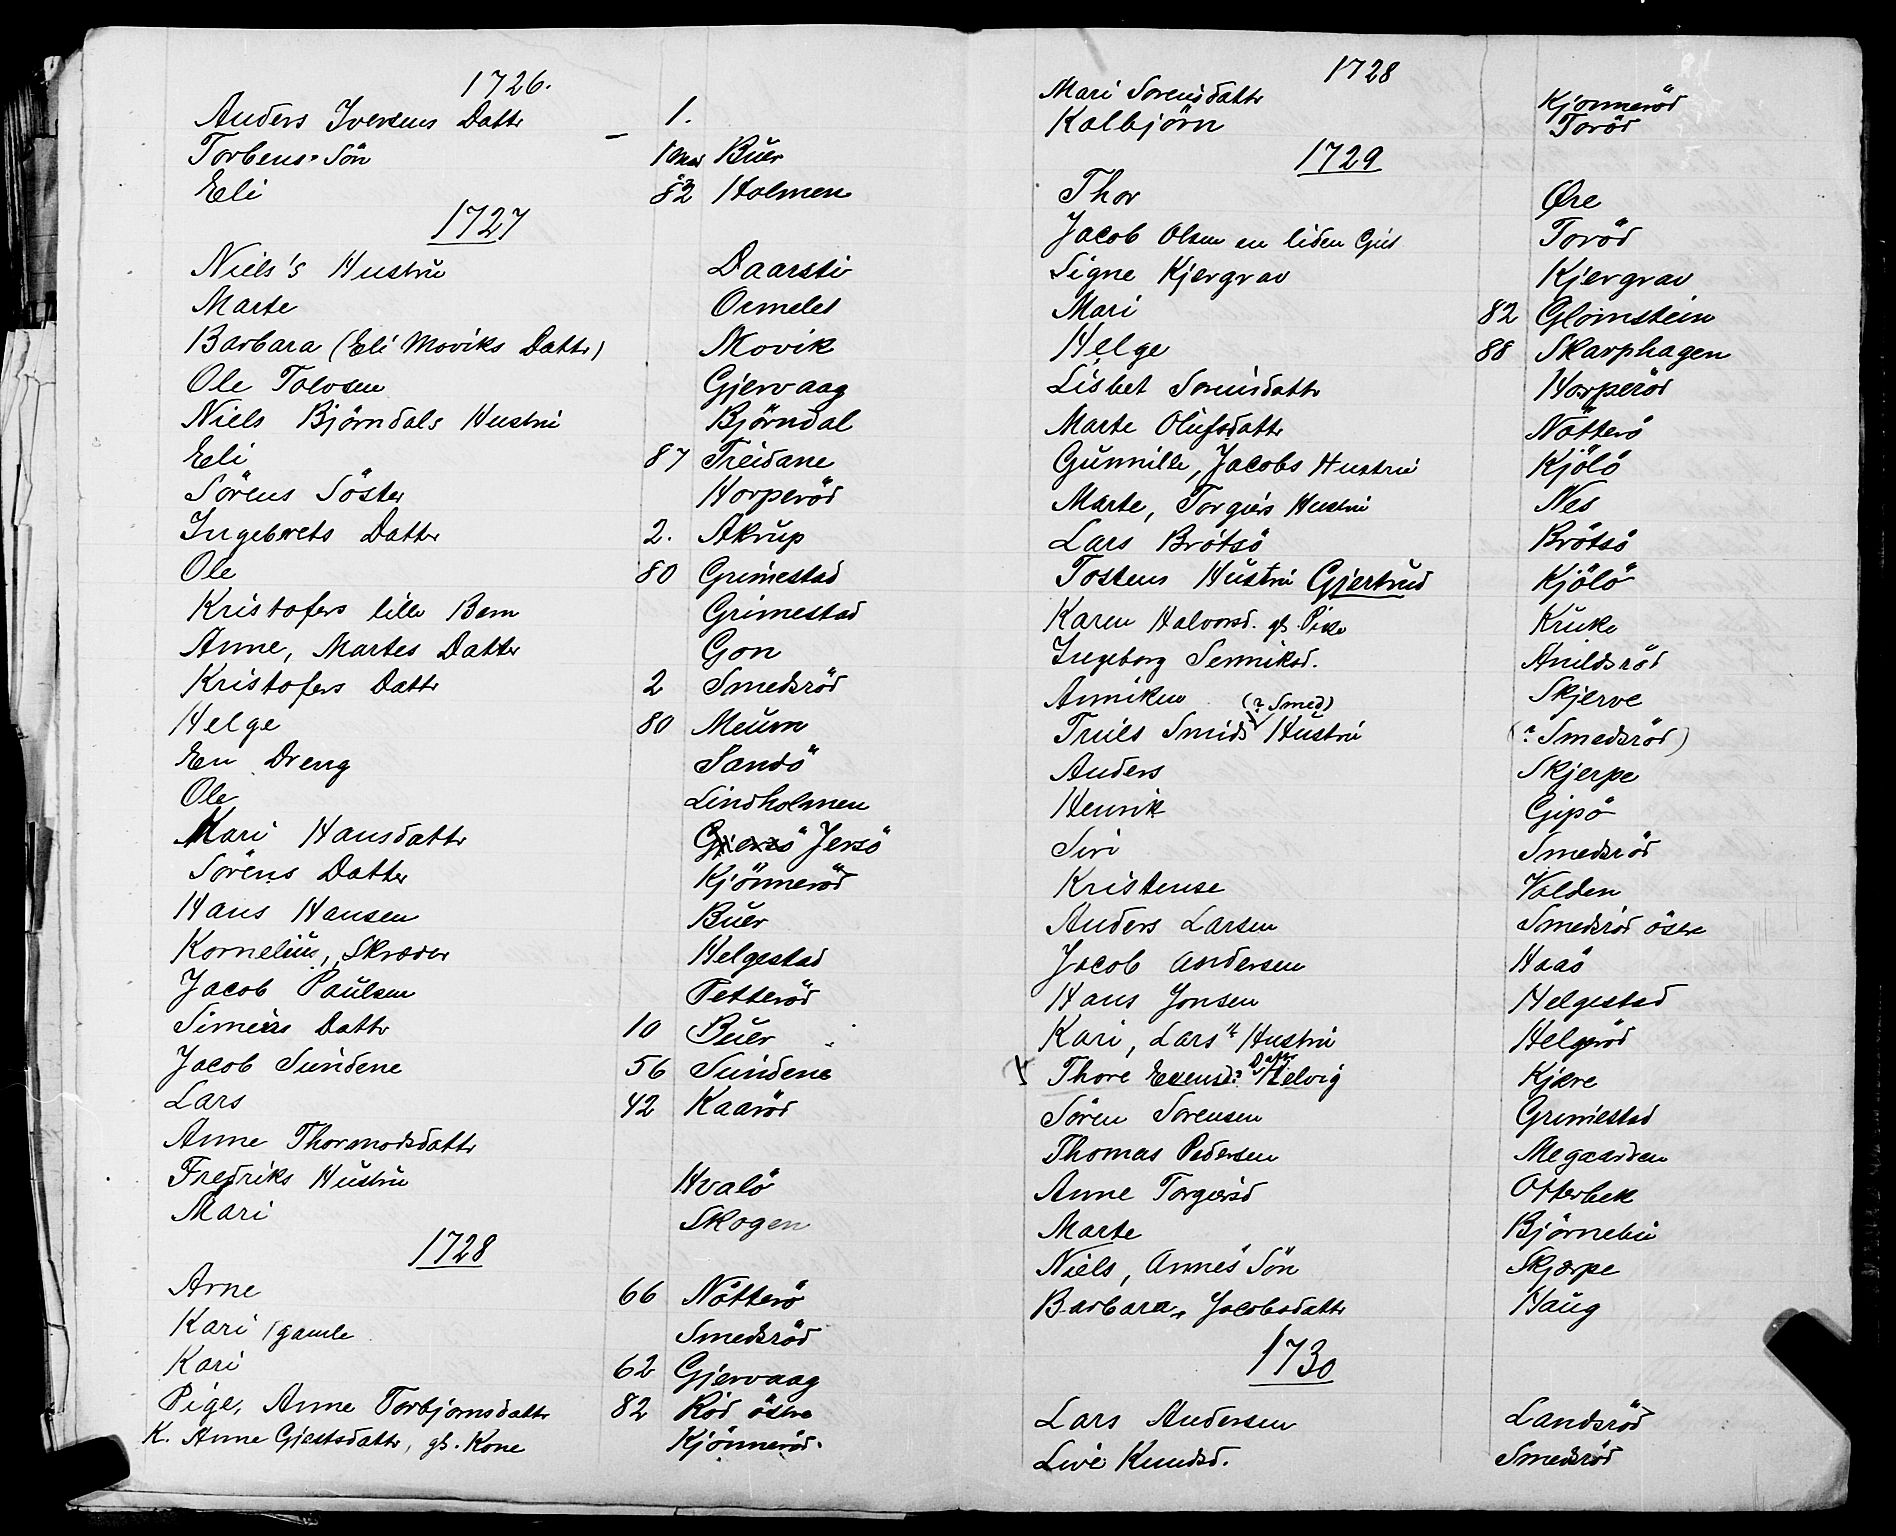 1726.
Anders Iversens Datter 1.
Torbens Sön 1 Buer
Eli 82 Holmen
1727
Niels's Hustru Daarsti
Marte Ormelet
Barbara (Eli Moviks Datter) Movik
Ole Tolvsen Gjervaag
Niels Björndals Hustru Björndal
Eli 87 Treidane
Sörens Söster Horperöd
Ingebrets Datter 2. Akrup
Ole 80 Grimestad
Kristofers lille Barn Grimestad
Anne, Martes Datter Gon
Kristofers Datter 2 Smedsröd
Helge 80 Meum
En Dreng Sandö
Ole Lindholmen
Kari Hansdatter Jersö
Sörens Datter Kjönneröd
Hans Hansen Buer
Kornelius, Skræder Helgestad
Jacob Paulsen Petteröd
Simens Datter 10 Buer
Jacob Sundene 56 Sundene
Lars 42 Kaaröd
Anne Thormodsdatter
Fredriks Hustru Hvalö
Mari Skogen
1728
Arne 66 Nötterö
Kari gamle Smedsröd
Kari 62 Gjervaag
Pige, Anne Torbjornsdatter 82 Röd östre
K. Anne Gjestsdatter, gl. Kone Kjönneröd.
1728
Mari Sorensdatter Kjonneröd
Kolbjörn Toröd
1729
Thor Øre
Jacob Olsen en liden Gut Toröd
Signe Kjergrav Kjergrav
Mari 82 Glomstein
Helge 88 Skarphagen
Lisbet Sorensdatter Horperöd
Marte Olufsdatter Nötterö
Gunnille, Jacobs Hustru Kjölö
Marte, Torgiers Hustru Nes
Lars Brötsö Brötsö
Tostens Hustru Gjertrud Kjölö
Karen Halvorsd. gl. Pike Kruke
Ingeborg Senniksd. Anildsröd
Anniken Skjerve
(? Smed)
Truls Smids Hustru (? Smedsröd)
Anders Skjerpe
Henrik Gipö
Siri Smedsröd
Kristense Volden
Anders Larsen Smedsröd östre
Jacob Andersen Haaö
Hans Jonsen Helgestad
Kari, Lars's Hustru Helgeröd
Thore Evensd? Datter Helvig Kjære
Sören Sorensen Grimestad
Thomas Pedersen Megaarden
Anne Torgersd Otterbek
Marte Björnebu
Niels, Annes Sön Skjærpe
Barbara, Jacobsdatter Haug
1730
Lars Andersen Landsröd
Live Knudsd. Smedsröd